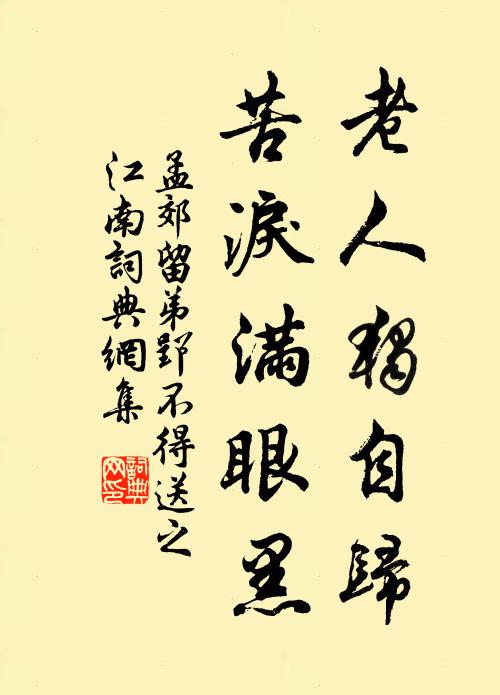 老人獨自歸
苦淚滿眼黑
孟郊留弟郢不得送之
江南詞典網集
詞典
网印